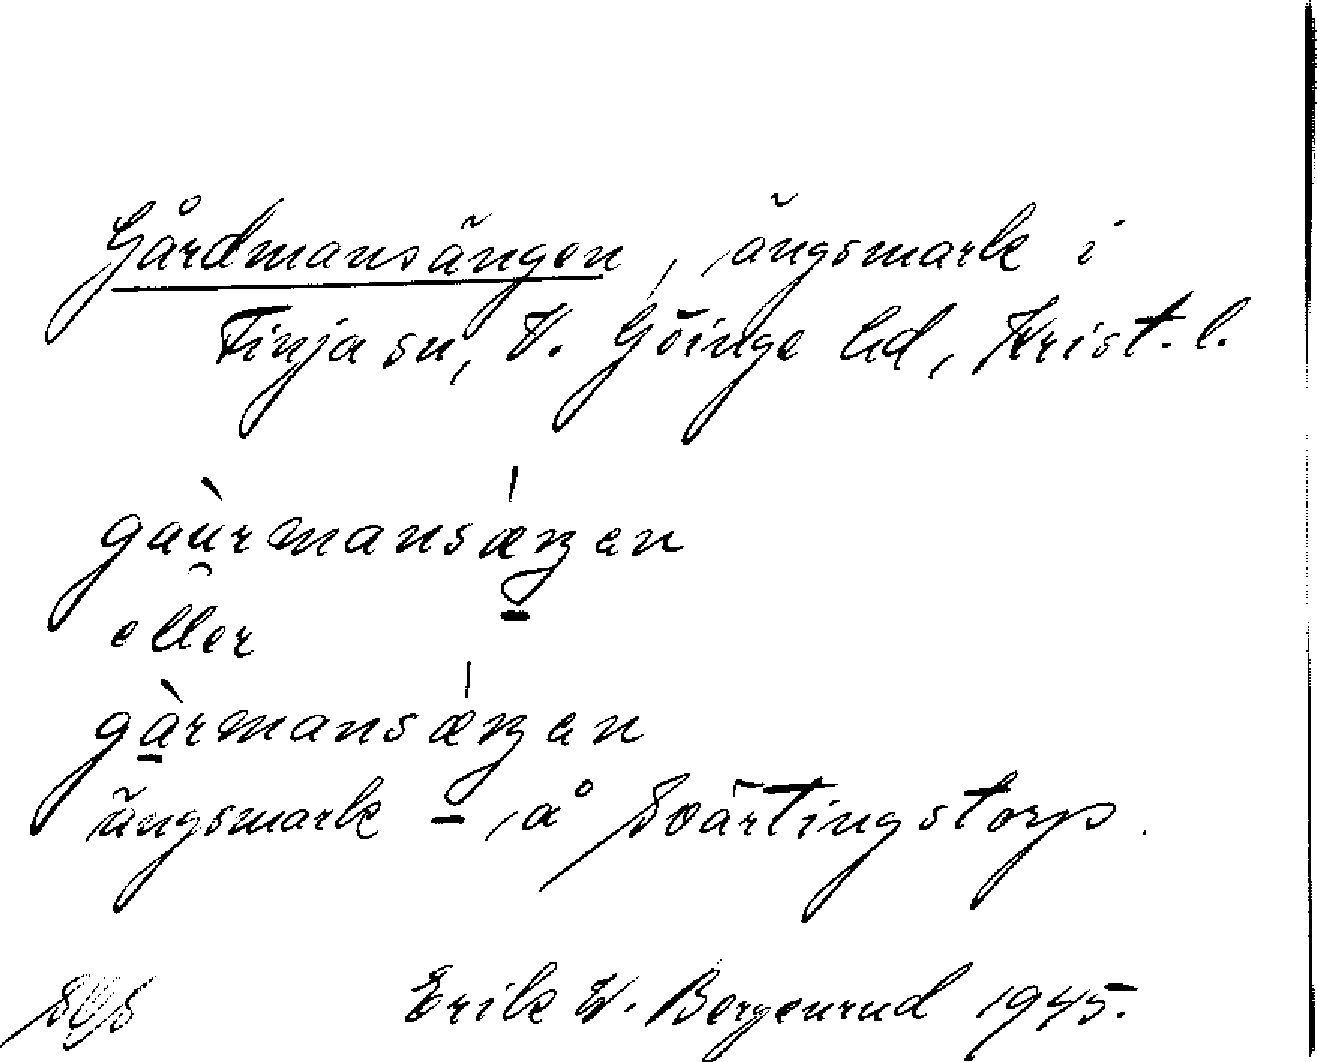 Gårdmansängen, ängsmark i
Finja sn, V. Göinge hd, Krist. l.
gàu̯rmansǽŋen
eller
gàrmansǽŋen
ängsmark på Svärtingstorp.
Erik W. Bergenrud 1945.